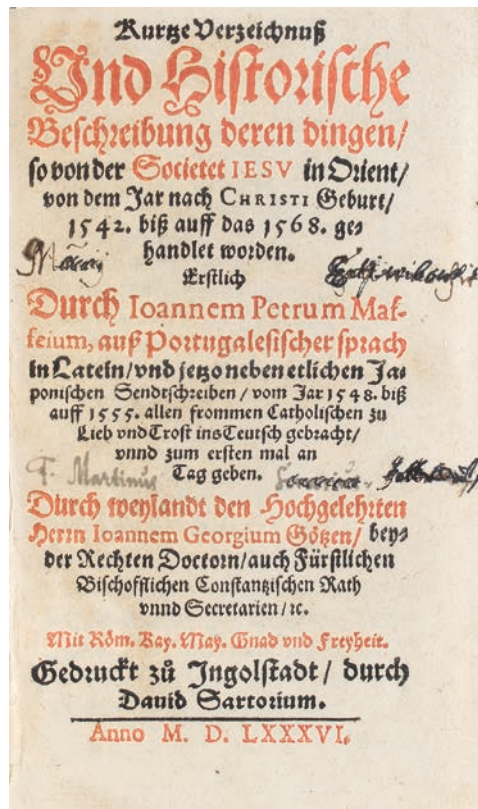 Kurtze Verzeichnuß
Vnd Historische
Beschreibung deren dingen/
so von der Societet IESV in Orient/
von dem Jar nach CHRISTI Geburt/
1542. biß auff das 1568. ge-
handlet worden.
Erstlich
Durch Ioannem Petrum Maf-
feium, auß Portugalesischer sprach
in Latein/ vnd jetzo neben etlichen Ja-
ponischen Sendtschreiben / vom Jar 1548. biß
auff 1555. allen frommen Catholischen zu
Lieb vnd Trost ins Teutsch gebracht/
vnnd zum ersten mal an
Tag geben.
F. Martinus
Durch weylandt den Hochgelehrten
Herrn Ioannem Georgium Götzen/ bey-
der Rechten Doctorn/ auch Fürstlichen
Bischofflichen Constantzischen Rath
vnnd Secretarien/ ꝛc.
Mit Röm. Kay. May. Gnad vnd Freyheit.
Gedruckt zů Ingolstadt/ durch
Dauid Sartorium.
Anno M. D. LXXXVI.